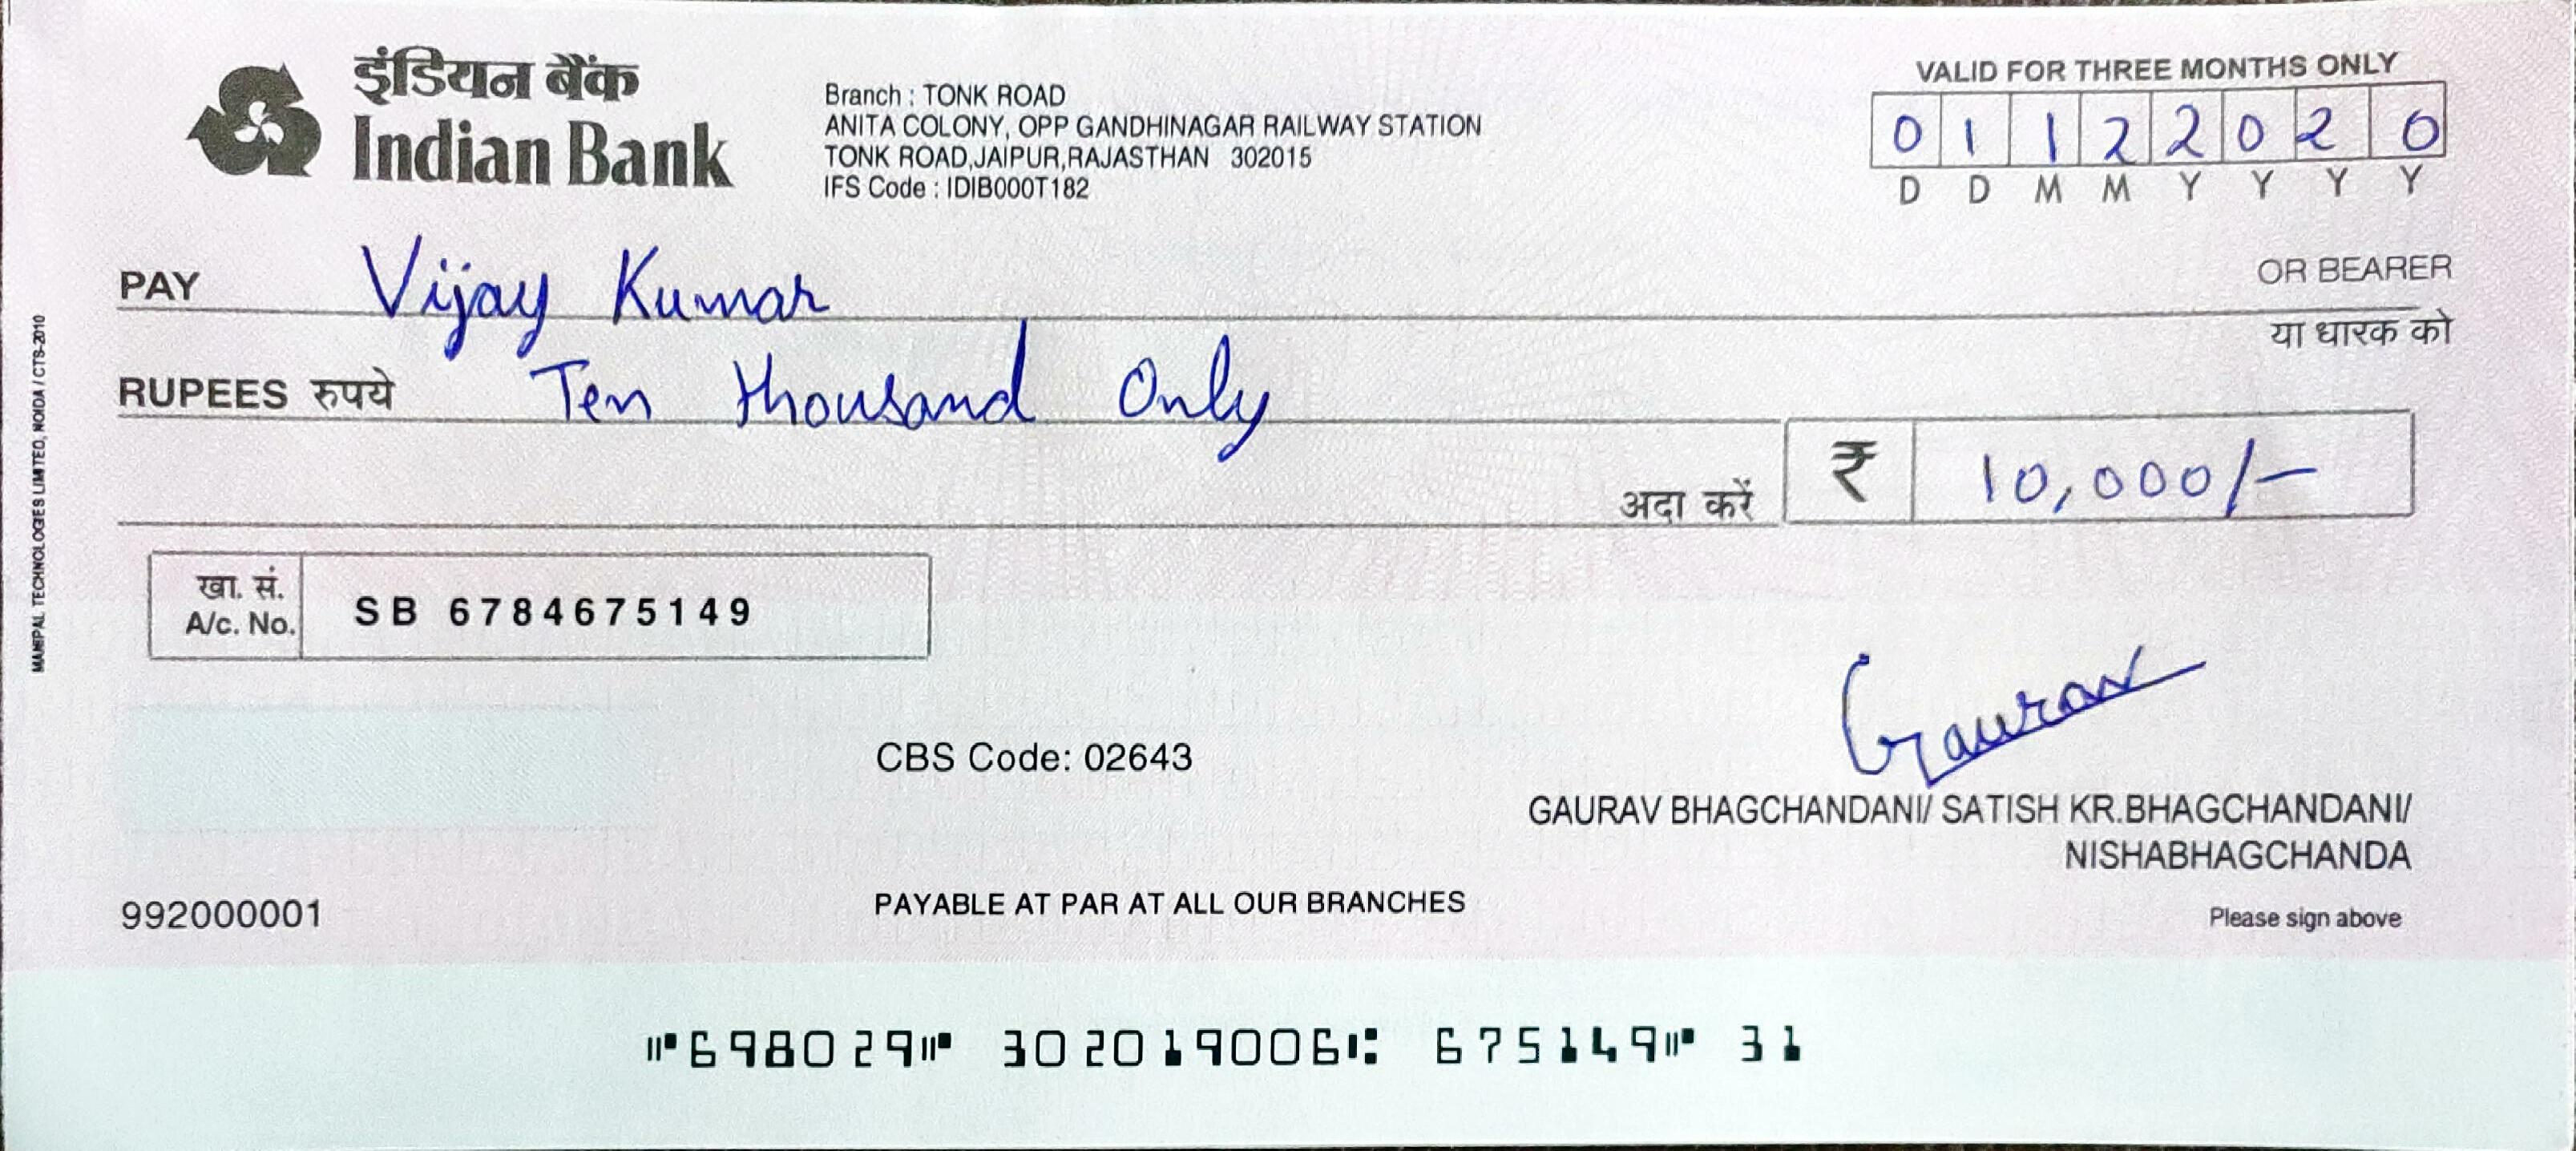 इंडियन बैंक
Indian Bank
Branch : TONK ROAD
ANITA COLONY, OPP GANDHINAGAR RAILWAY STATION
TONK ROAD,JAIPUR,RAJASTHAN 302015
IFS Code : IDIB000T182
VALID FOR THREE MONTHS ONLY
0 1 1 2 2 0 2 0
D D M M Y Y Y Y
PAY Vijay Kumar OR BEARER
या धारक को
RUPEES रुपये Ten thousand Only
अदा करें ₹ 10,000/-
खा. सं.
A/c. No. SB 6784675149
MANIPAL TECHNOLOGIES LIMITED, NOIDA / CTS-2010
Gaurav
CBS Code: 02643
GAURAV BHAGCHANDANI/ SATISH KR.BHAGCHANDANI/
NISHABHAGCHANDA
992000001 PAYABLE AT PAR AT ALL OUR BRANCHES Please sign above
⑈698029⑈ 302019006⑆ 675149⑈ 31